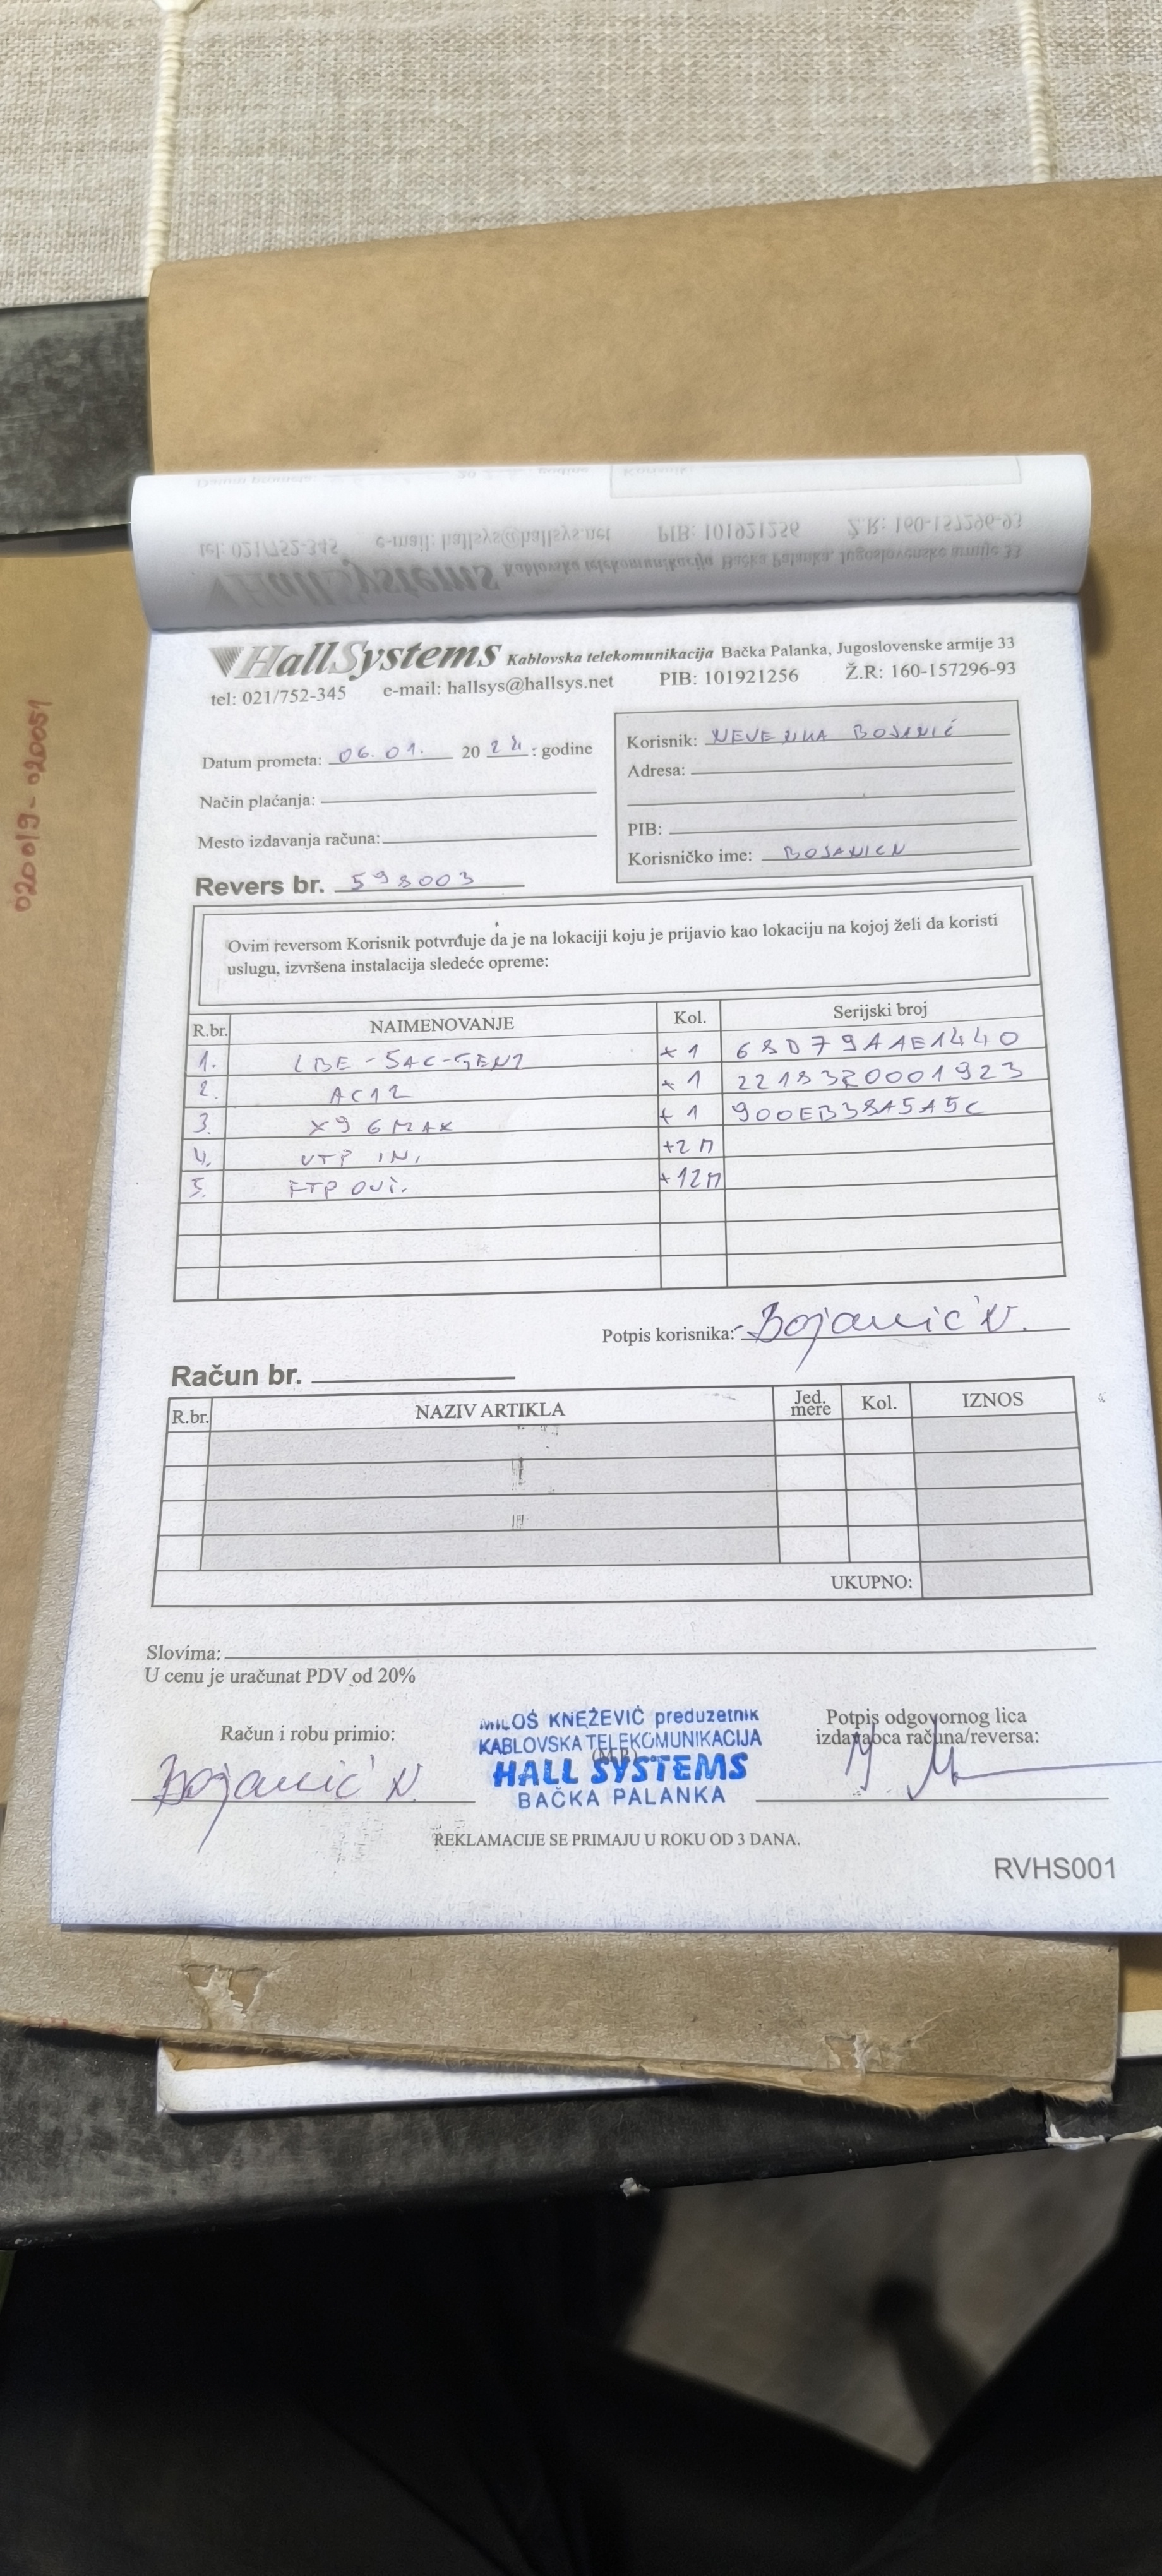 HallSystems Kablovska telekomunikacija Bačka Palanka, Jugoslovenske armije 33
tel: 021/752-345 e-mail: hallsys@hallsys.net PIB: 101921256 Ž.R: 160-157296-93
Datum prometa: 06.01. 2024. : godine
Način plaćanja:
Mesto izdavanja računa:
Korisnik: NEVENKA BOJANIĆ
Adresa:
PIB:
Korisničko ime: BOJANICN
Revers br. 598003
Ovim reversom Korisnik potvrđuje da je na lokaciji koju je prijavio kao lokaciju na kojoj želi da koristi
uslugu, izvršena instalacija sledeće opreme:
R.br. NAIMENOVANJE Kol. Serijski broj
1. LBE-5AC-GEN2 +1 68D79AAE1440
2. AC12 +1 2218320001923
3. X96MAX +1 900EB38A5A5C
4. UTP IN. +2M
5. FTP OUT. +12M
Potpis korisnika: Bojanić N.
Račun br.
R.br. NAZIV ARTIKLA Jed. mere Kol. IZNOS
UKUPNO:
Slovima:
U cenu je uračunat PDV od 20%
Račun i robu primio:
Bojanić N.
MILOŠ KNEŽEVIĆ preduzetnik
KABLOVSKA TELEKOMUNIKACIJA
(M.P.)
HALL SYSTEMS
BAČKA PALANKA
Potpis odgovornog lica
izdavaoca računa/reversa:
REKLAMACIJE SE PRIMAJU U ROKU OD 3 DANA.
RVHS001
020019-020051